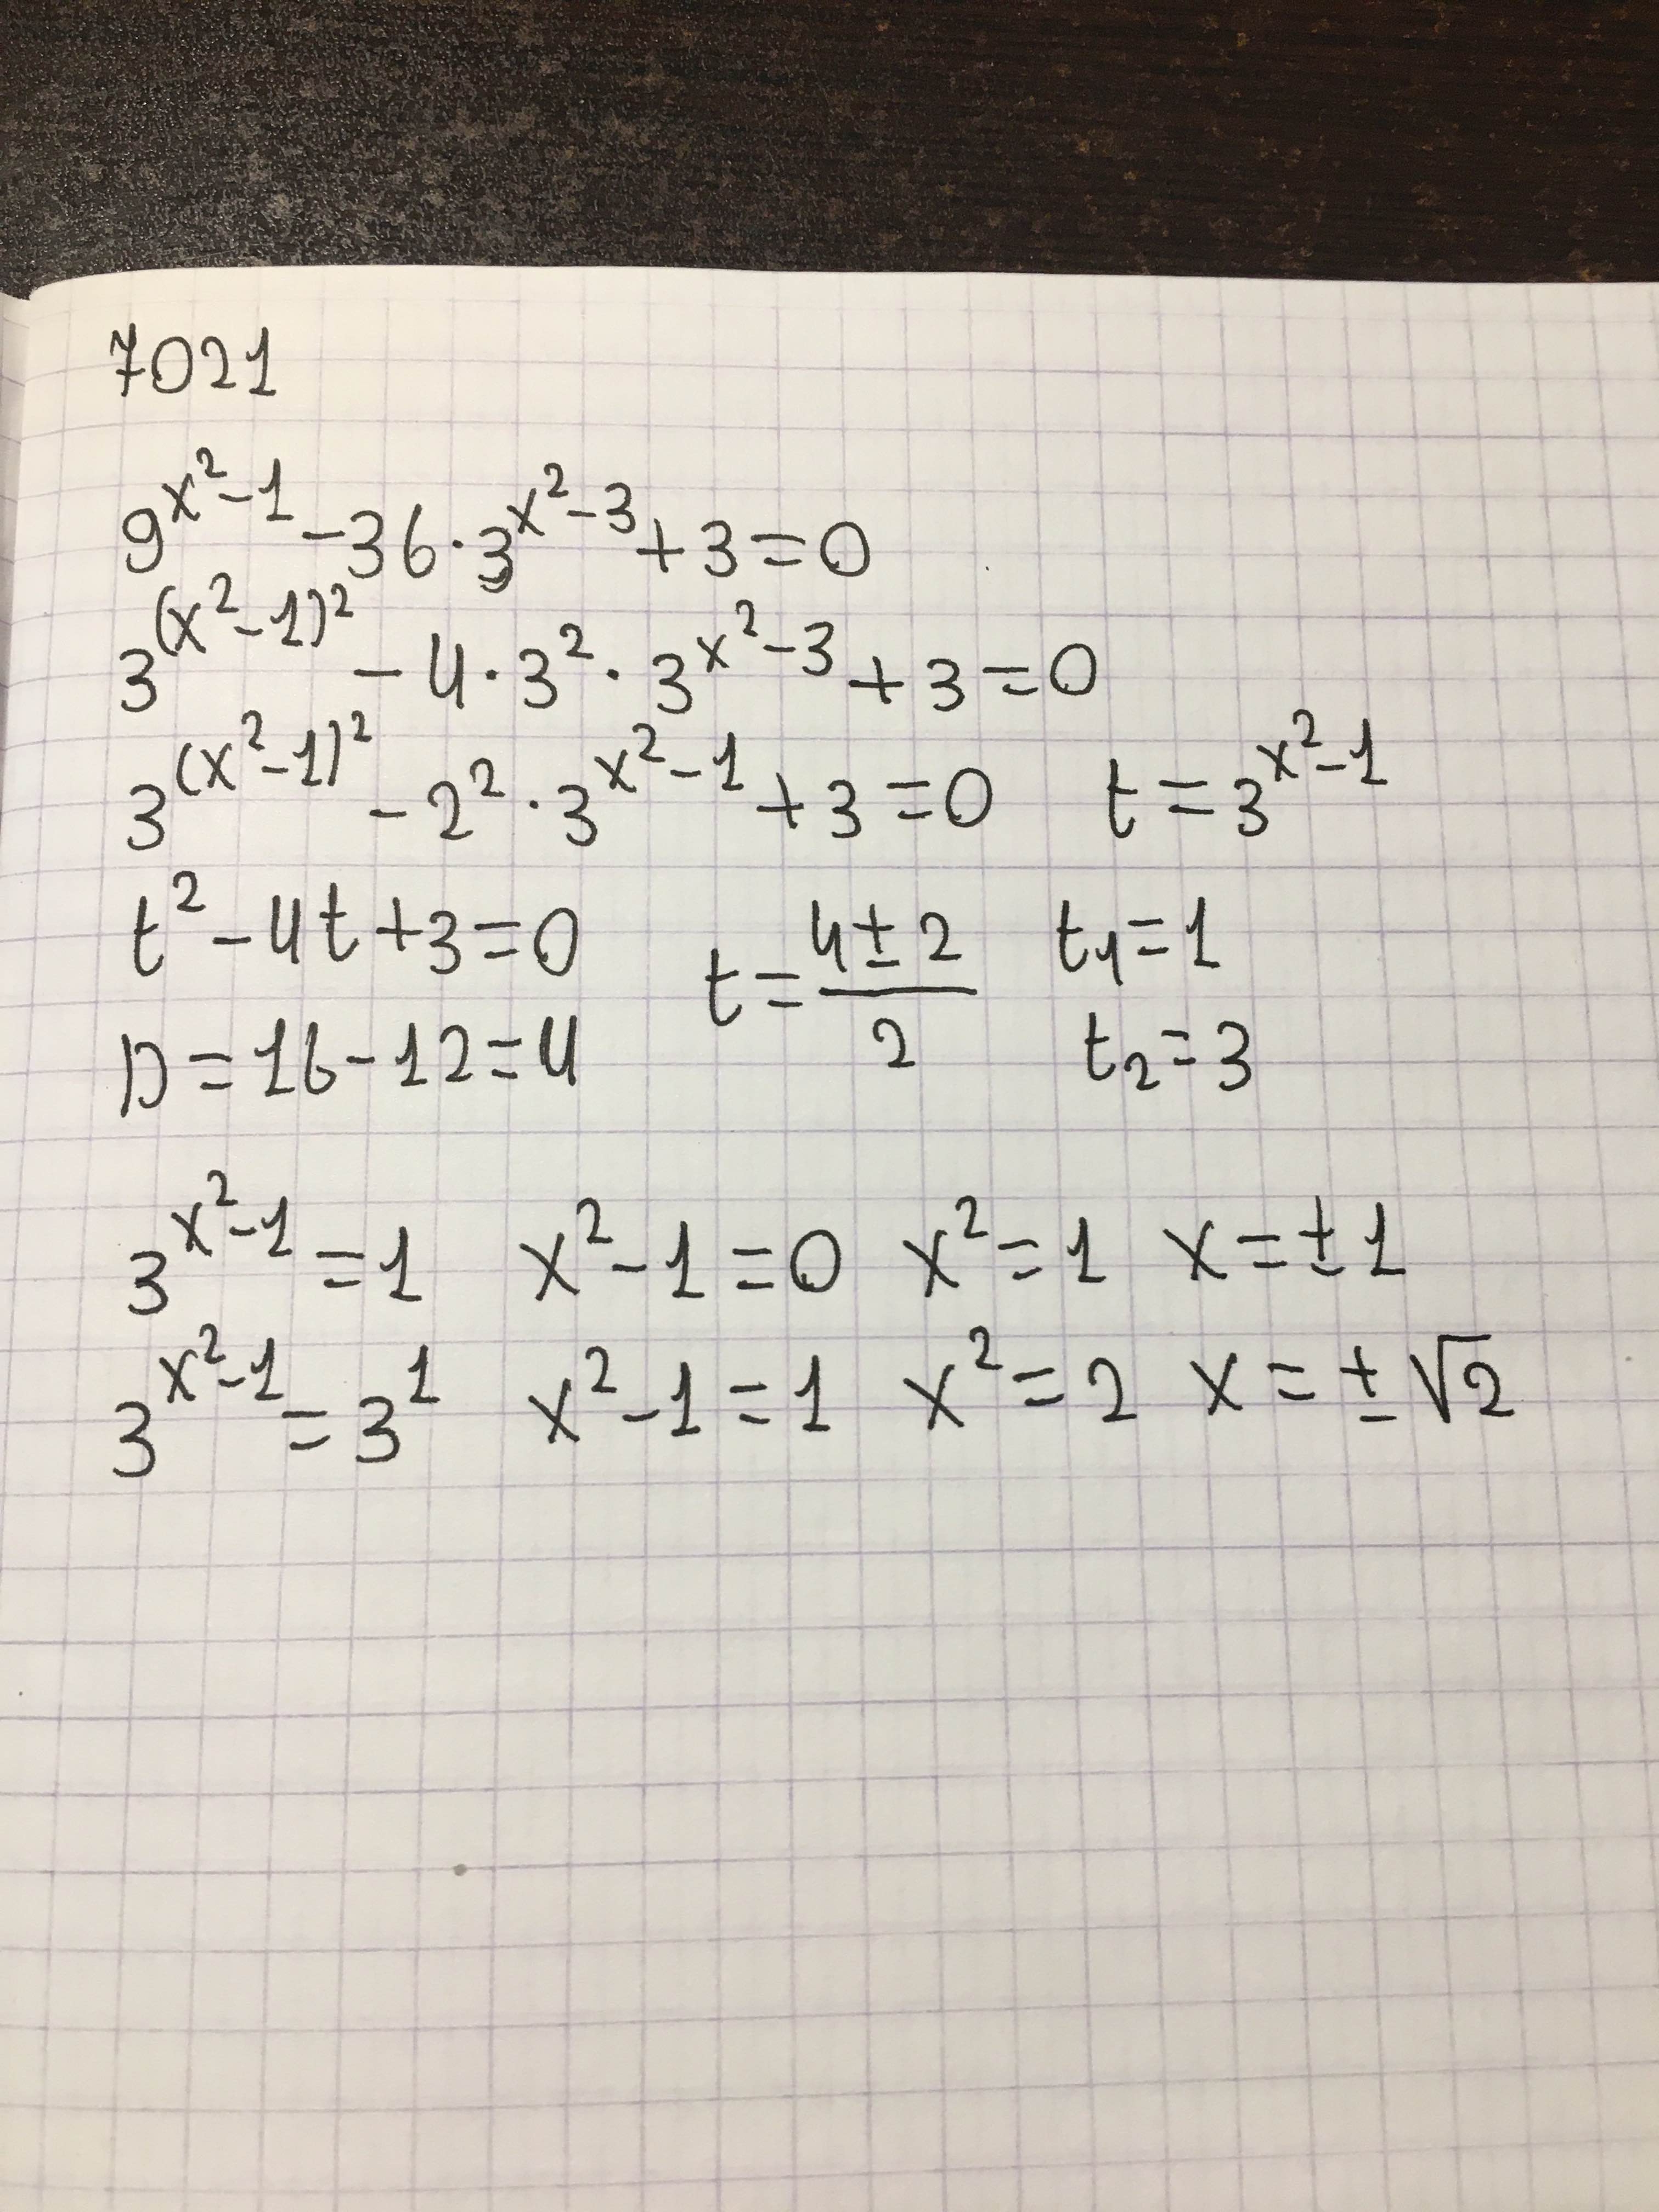 7021
9^{x^2-1} - 36 · 3^{x^2-3} + 3 = 0
3^{(x^2-1)^2} - 4 · 3^2 · 3^{x^2-3} + 3 = 0
3^{(x^2-1)^2} - 2^2 · 3^{x^2-1} + 3 = 0 t = 3^{x^2-1}
t^2 - 4t + 3 = 0 t = \frac{4 ± 2}{2} t_1 = 1
D = 16 - 12 = 4 t_2 = 3
3^{x^2-1} = 1 x^2 - 1 = 0 x^2 = 1 x = ± 1
3^{x^2-1} = 3^1 x^2 - 1 = 1 x^2 = 2 x = ± √2